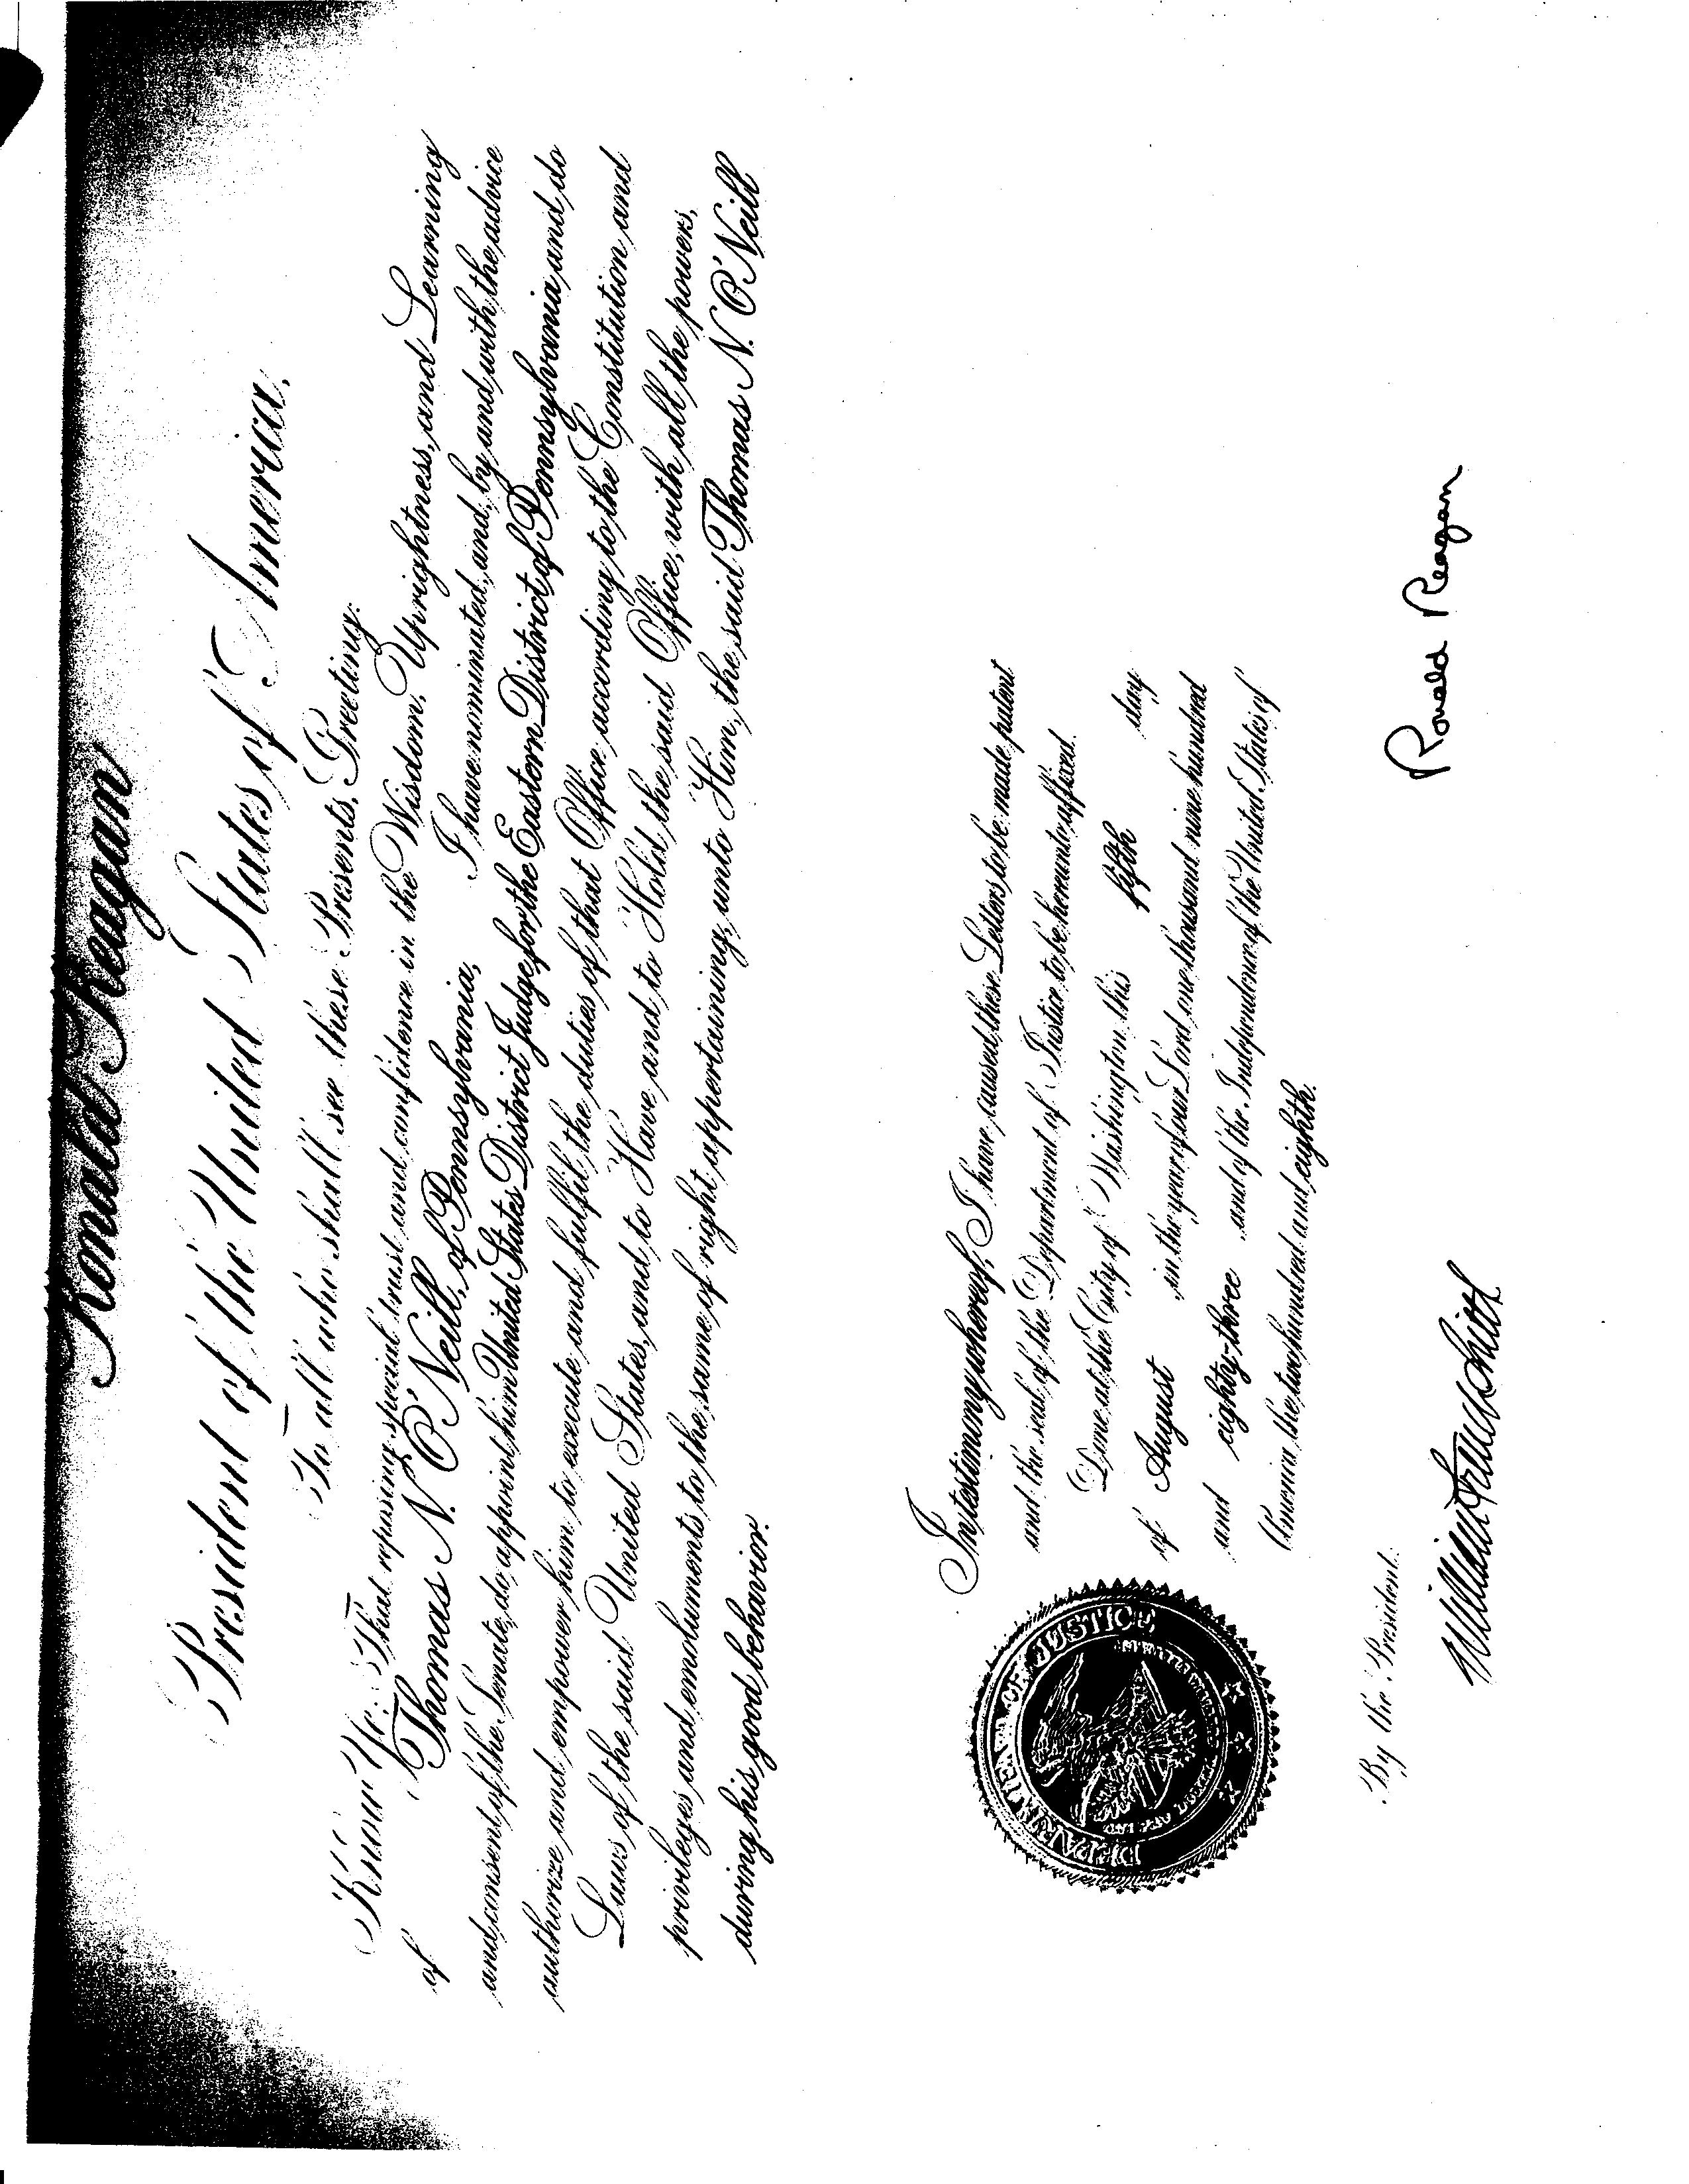 Ronald Reagan
President of the United States of America,
To all who shall see these Presents, Greeting:
Know Ye: That reposing special trust and confidence in the Wisdom, Uprightness, and Learning
of Thomas N. O'Neill, of Pennsylvania, I have nominated, and, by and with the advice
and consent of the Senate, do appoint him United States District Judge for the Eastern District of Pennsylvania and do
authorize and empower him to execute and fulfil the duties of that Office according to the Constitution and
Laws of the said United States, and to Have and to Hold the said Office, with all the powers,
privileges and emoluments to the same of right appertaining, unto Him, the said Thomas N. O'Neill
during his good behavior.
In testimony whereof, I have caused these Letters to be made patent
and the seal of the Department of Justice to be hereunto affixed.
Done at the City of Washington this fifth day
of August in the year of our Lord one thousand nine hundred
and eighty-three and of the Independence of the United States of
America the two hundred and eighth.
DEPARTMENT OF JUSTICE
Ronald Reagan
By the President:
William French Smith